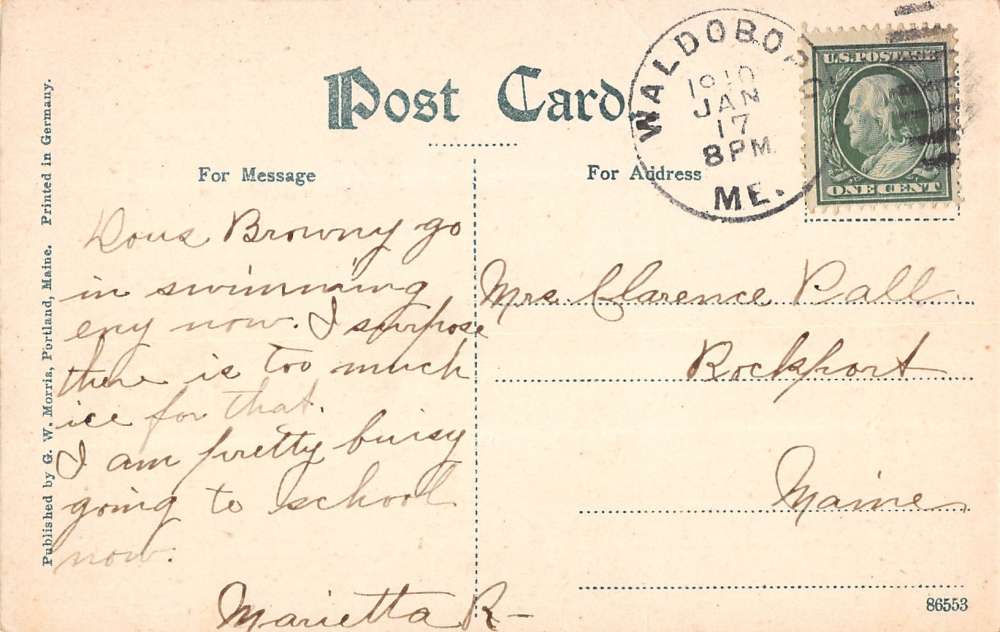 Post Card.
WALDOBORO
1910
JAN
17
8 PM
ME.
U.S. POSTAGE
ONE CENT
For Message
For Address
Does Browny go
in swimming
eny now. I surpose
there is too much
ice for that.
I am pretty buisy
going to school
now.
Marietta R-
Mrs. Clarence Pall
Rockport
Maine
Published by G. W. Morris, Portland, Maine. Printed in Germany.
86553